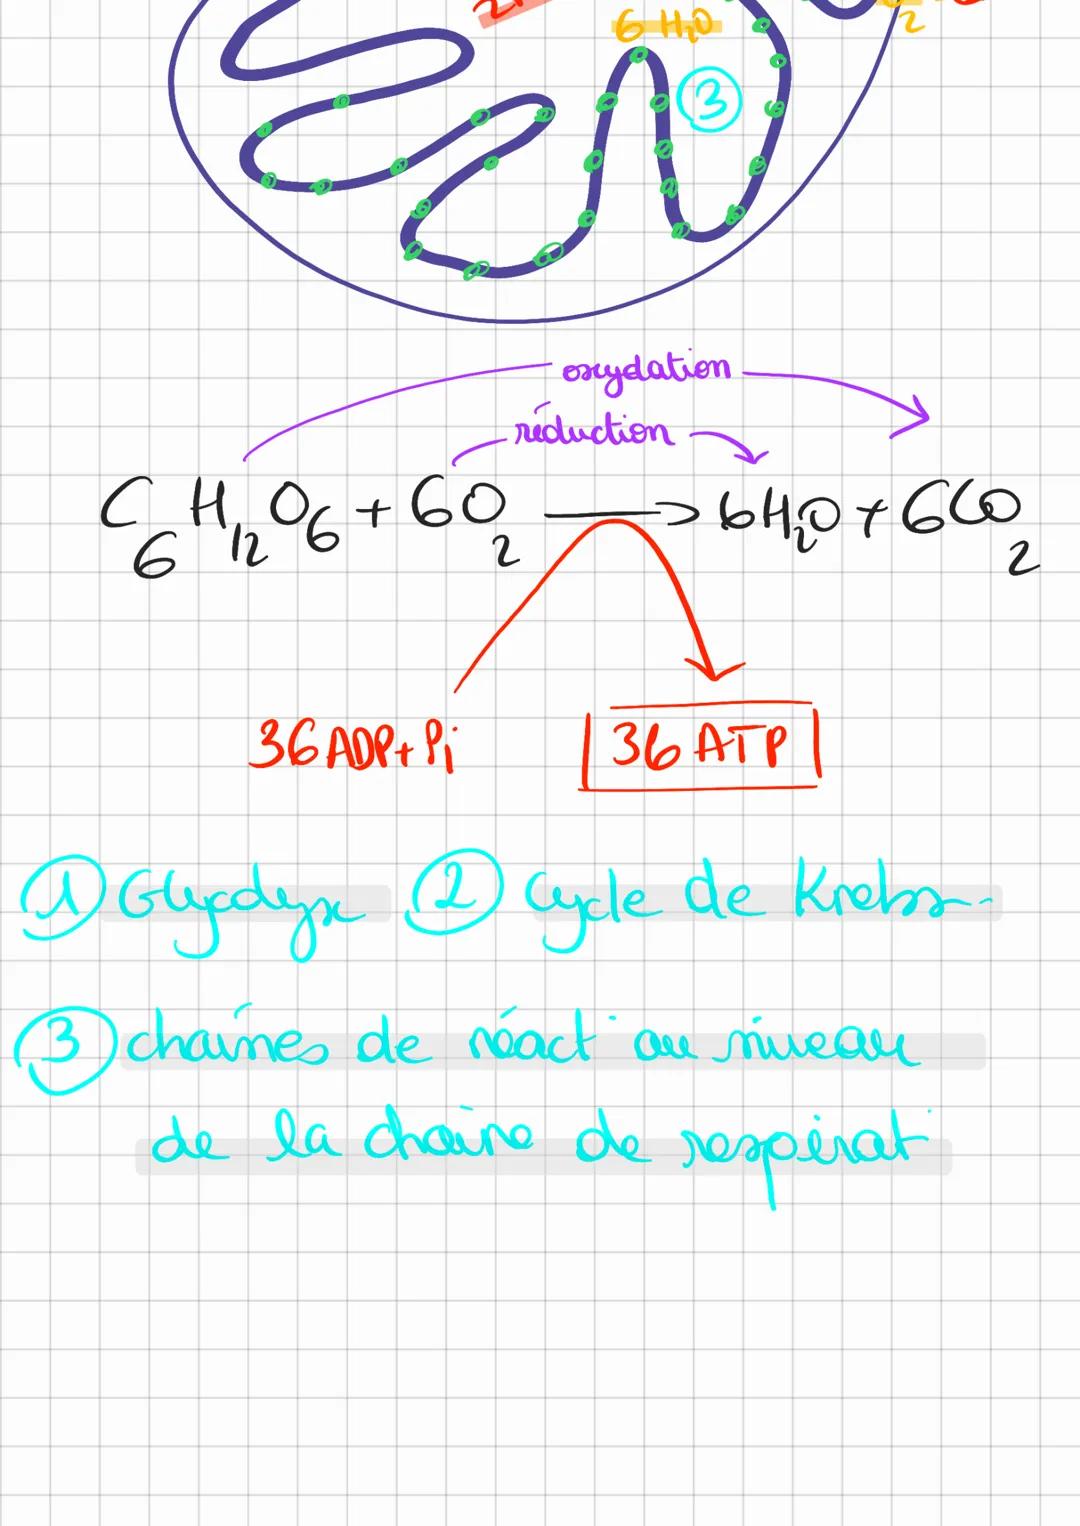 6 H₂O
2
③
oxydation
réduction
C₆H₁₂O₆ + 6O₂ → 6H₂O + 6CO₂
36 ADP + Pi 36 ATP
① Glycolyse ② Cycle de Krebs
③ chaînes de réact° au niveau
de la chaîne de respirat°